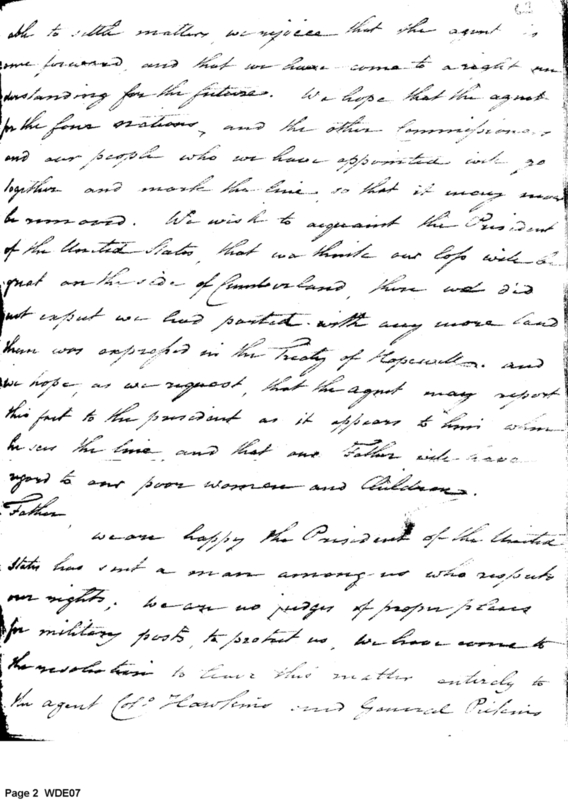 63
able to settle matters, we rejoice that the agent is
come forward, and that we have come to a right un
derstanding for the future. We hope that the agent
for the four nations, and the other Commissioners
and our people who we have appointed will go
together and mark the line, so that it may never
be removed. We wish to acquaint the President
of the United States, that we think our loss will be
great on the side of Cumberland, there we did
not expect we had parted with any more land
than was expressed in the Treaty of Hopewell. and
we hope, as we request, that the agent may report
this fact to the president as it appears to him when
he sees the line, and that our Father will have
regard to our poor women and Children.
Father
we are happy the President of the United
States has sent a man among us who respects
our rights; we are no judges of proper places
for military posts, to protect us, we have come to
the resolution to leave this matter entirely to
the agent Colo. Hawkins and General Pickins
Page 2 WDE07